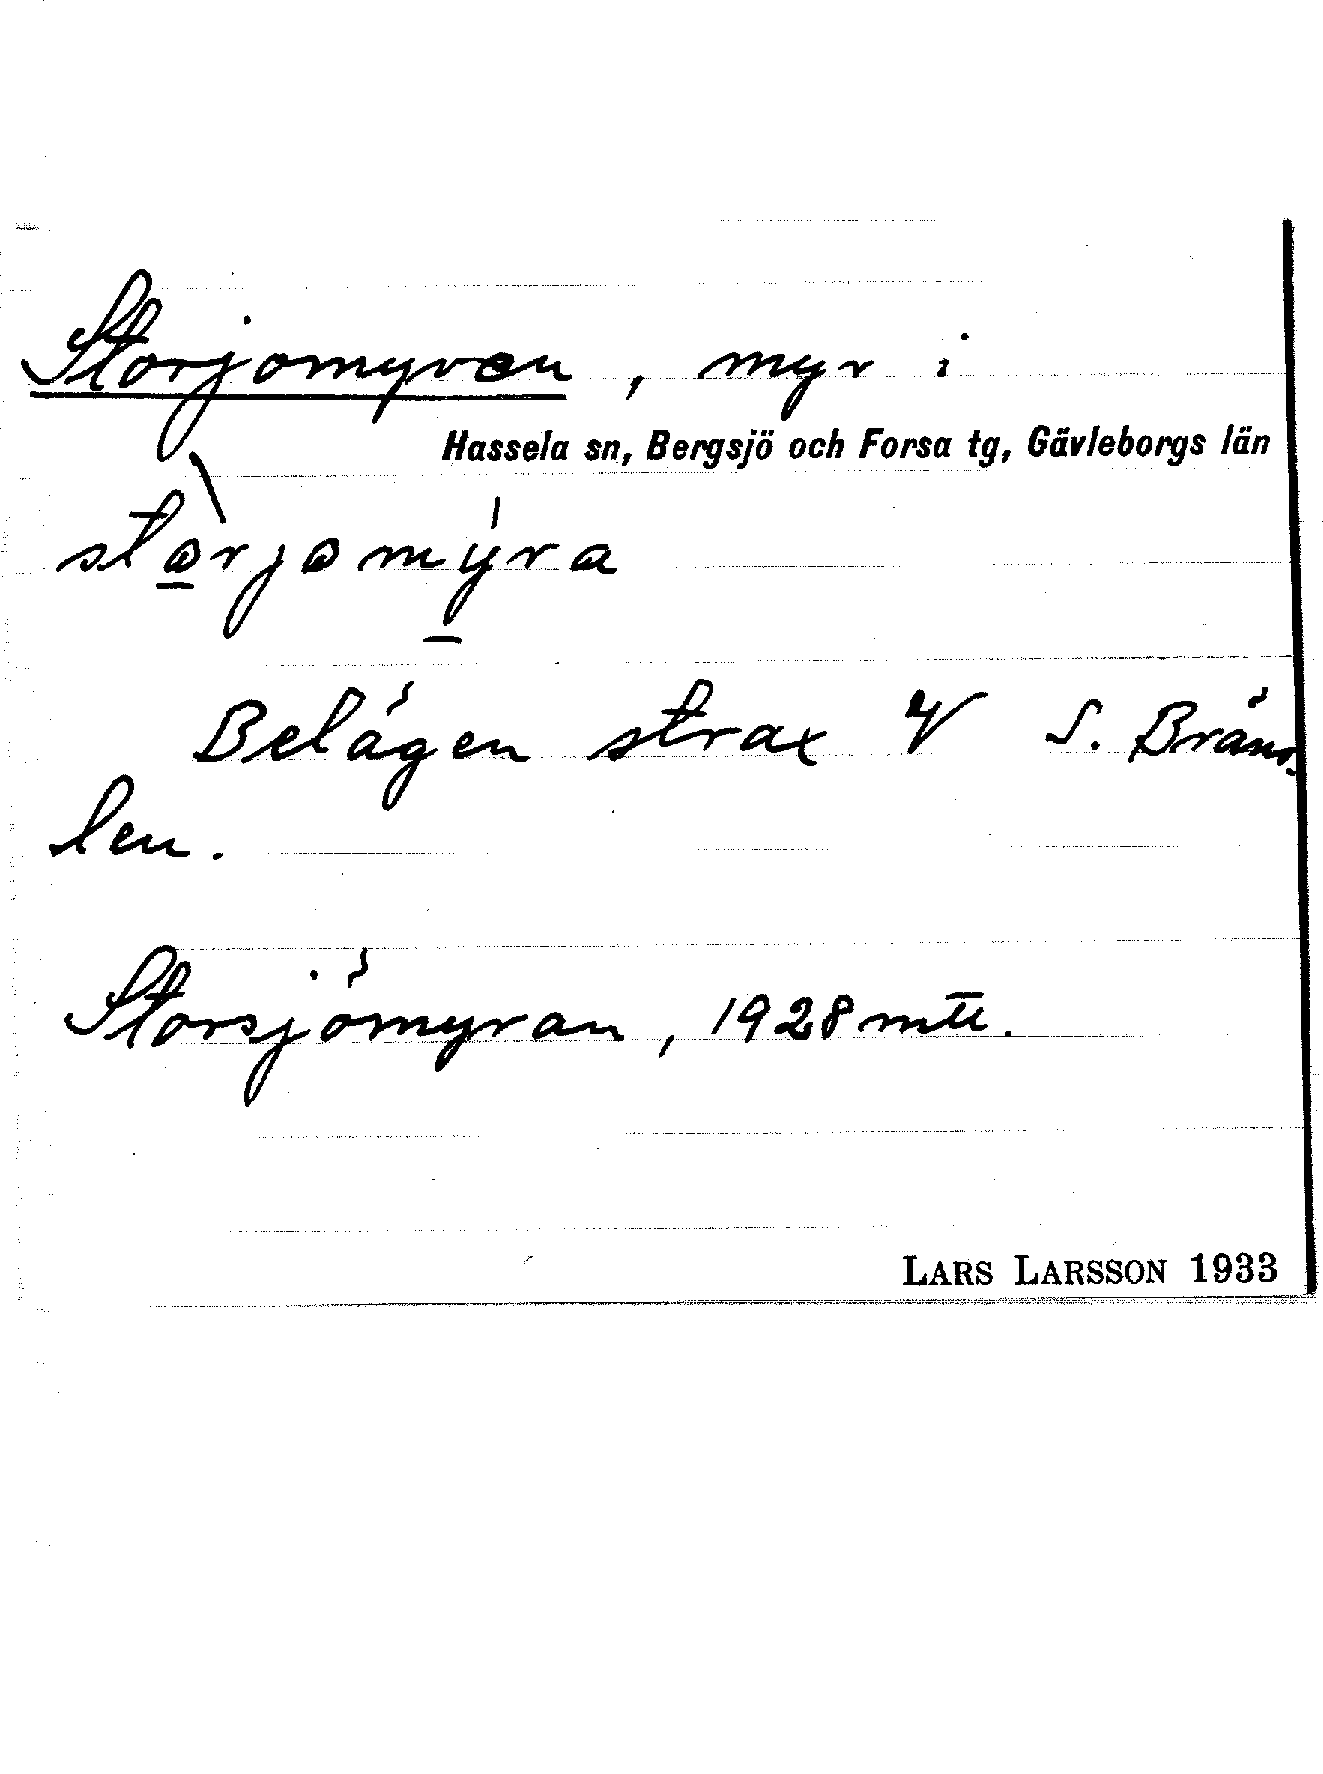 Storjomyren, myr i
Hassela sn, Bergsjö och Forsa tg, Gävleborgs län
stòrjomýra
Belägen strax V S. Bräns-
len.
Storsjömyran, 1928 mtl.
LARS LARSSON 1933